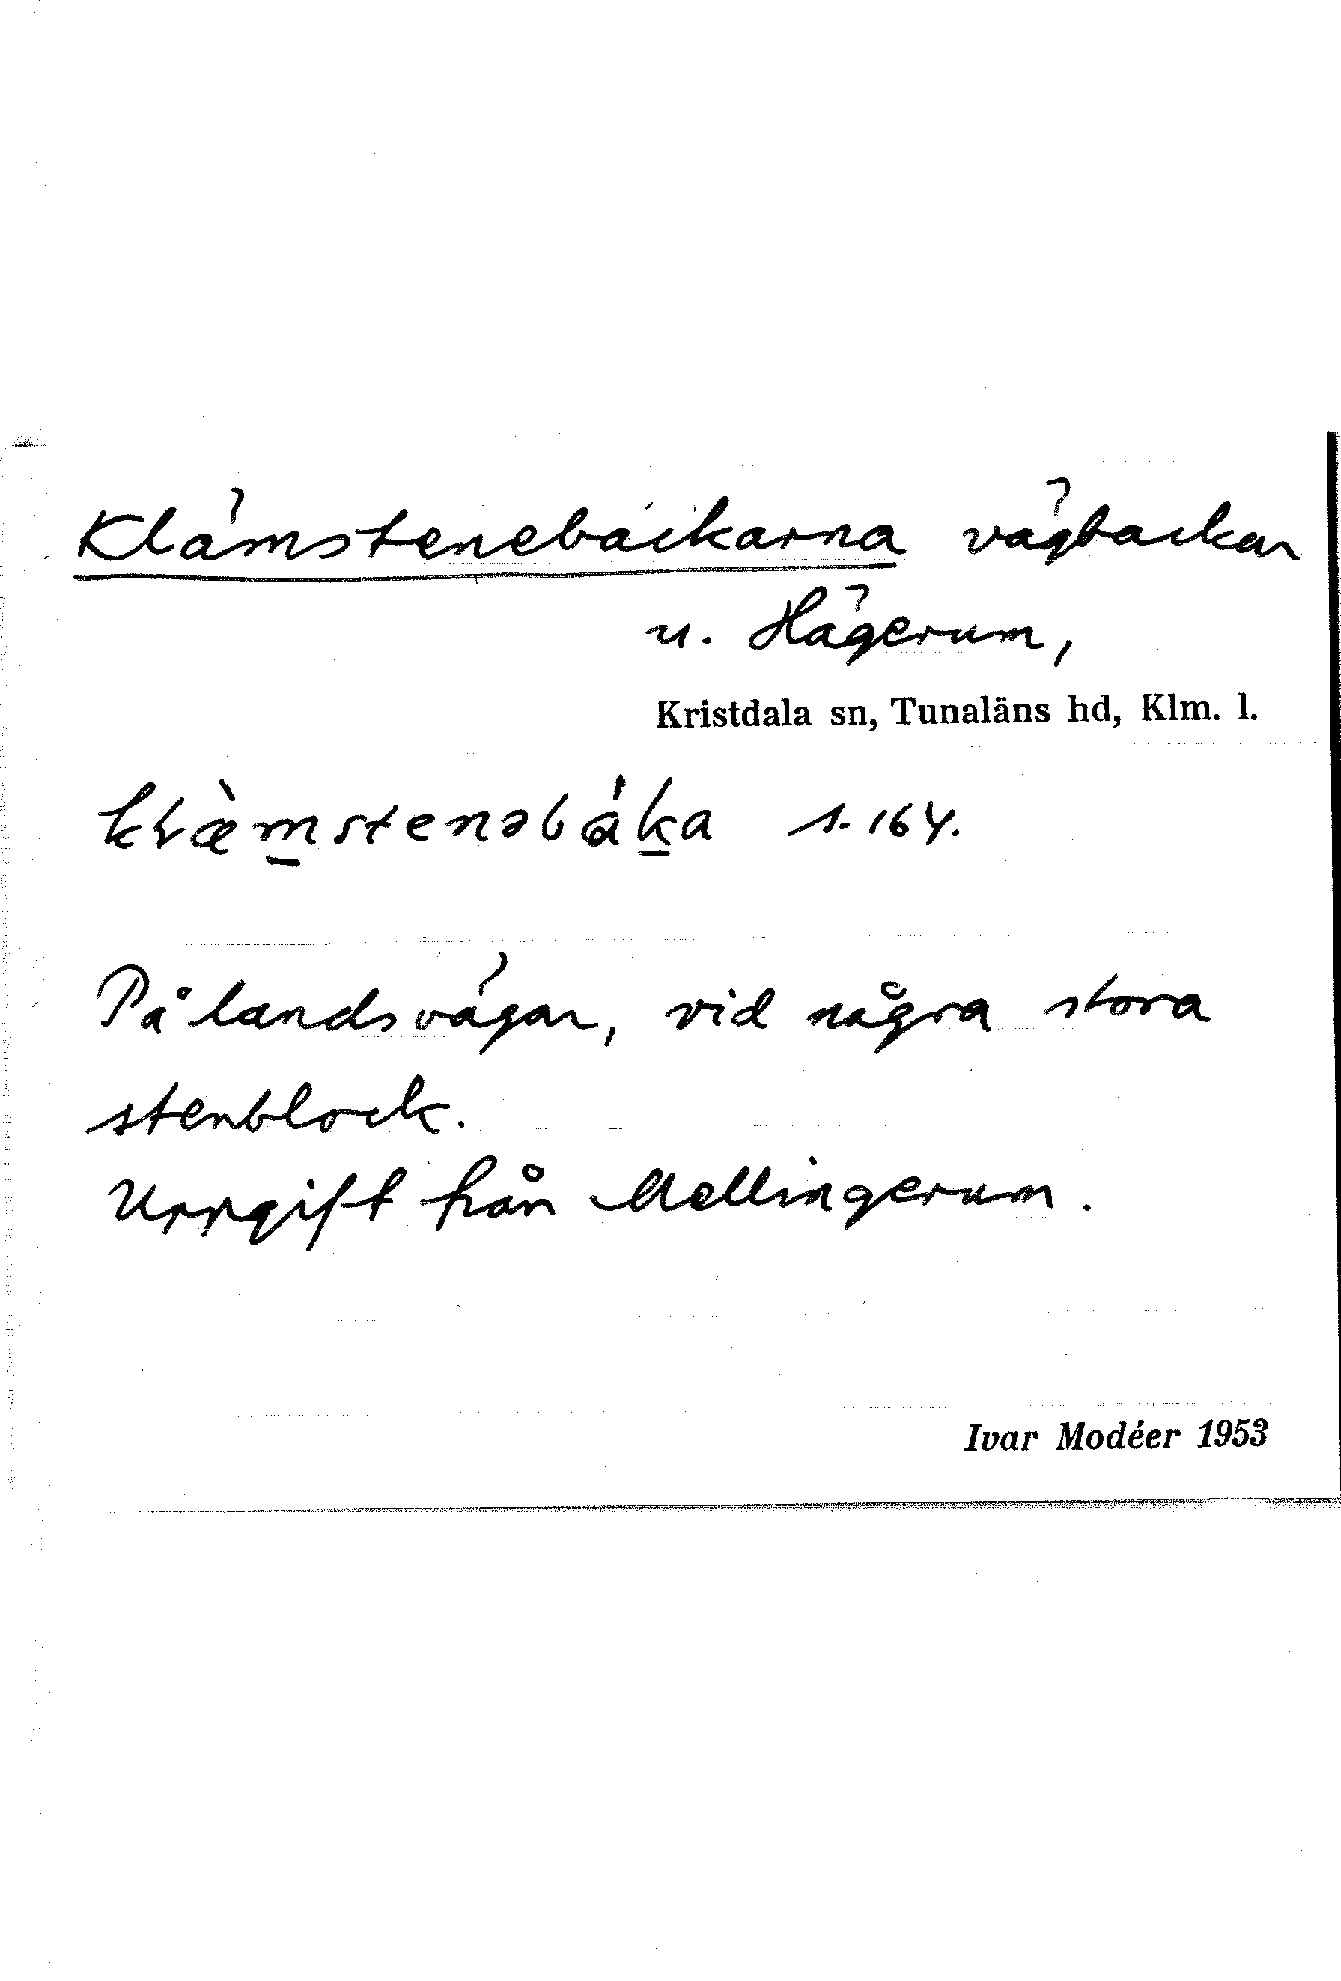 Klämstenebackarna vägbackar
u. Hägerum,
Kristdala sn, Tunaläns hd, Klm. l.
s. 164.
På landsvägar, vid några stora
stenblock.
Uppgift från Mellingerum.
Ivar Modéer 1953